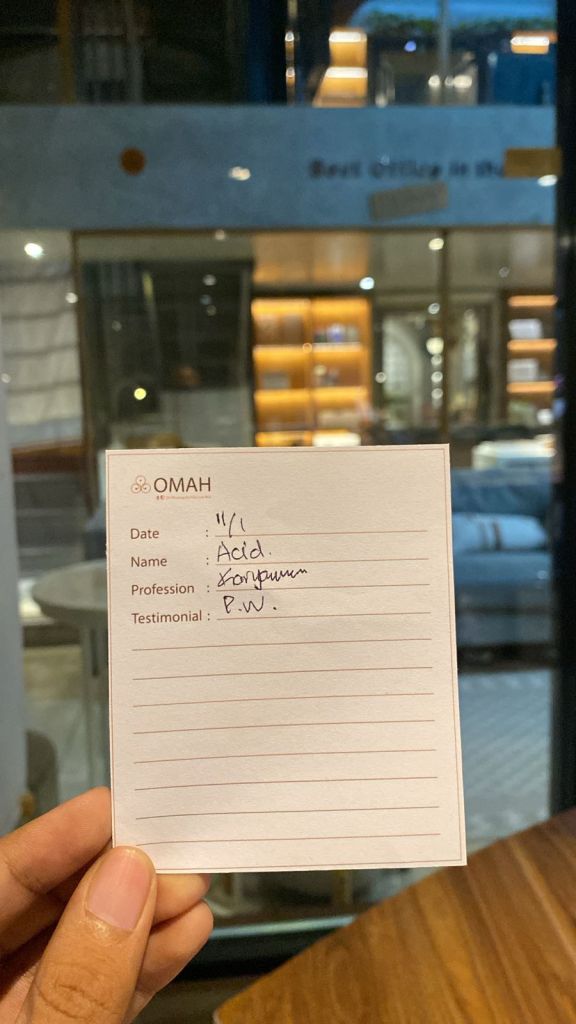 Best Office in the
OMAH
Date : 11/1
Name : Acid.
Profession : Karyawan
Testimonial : P.W.